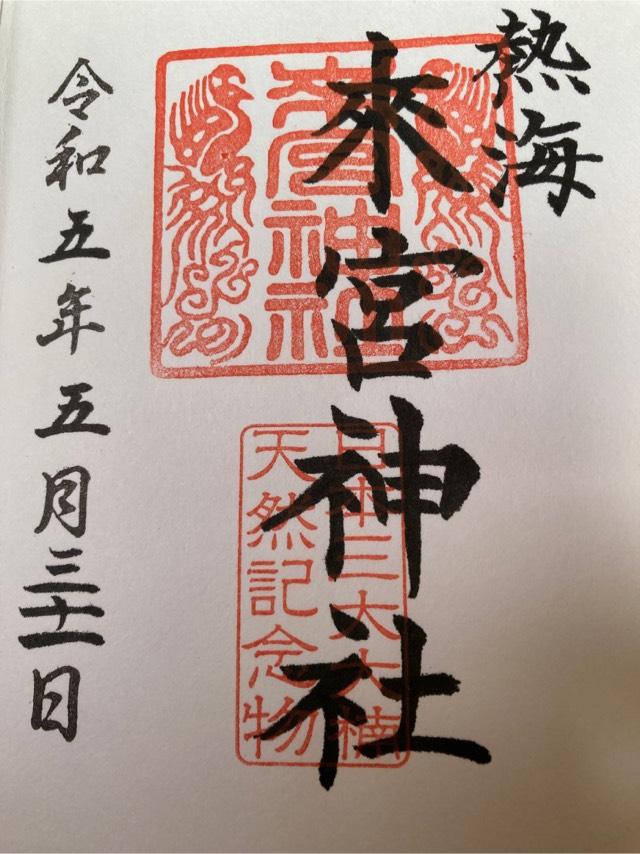 熱海
來宮神社
來宮神社
日本三大大楠
天然記念物
令和五年五月三十一日